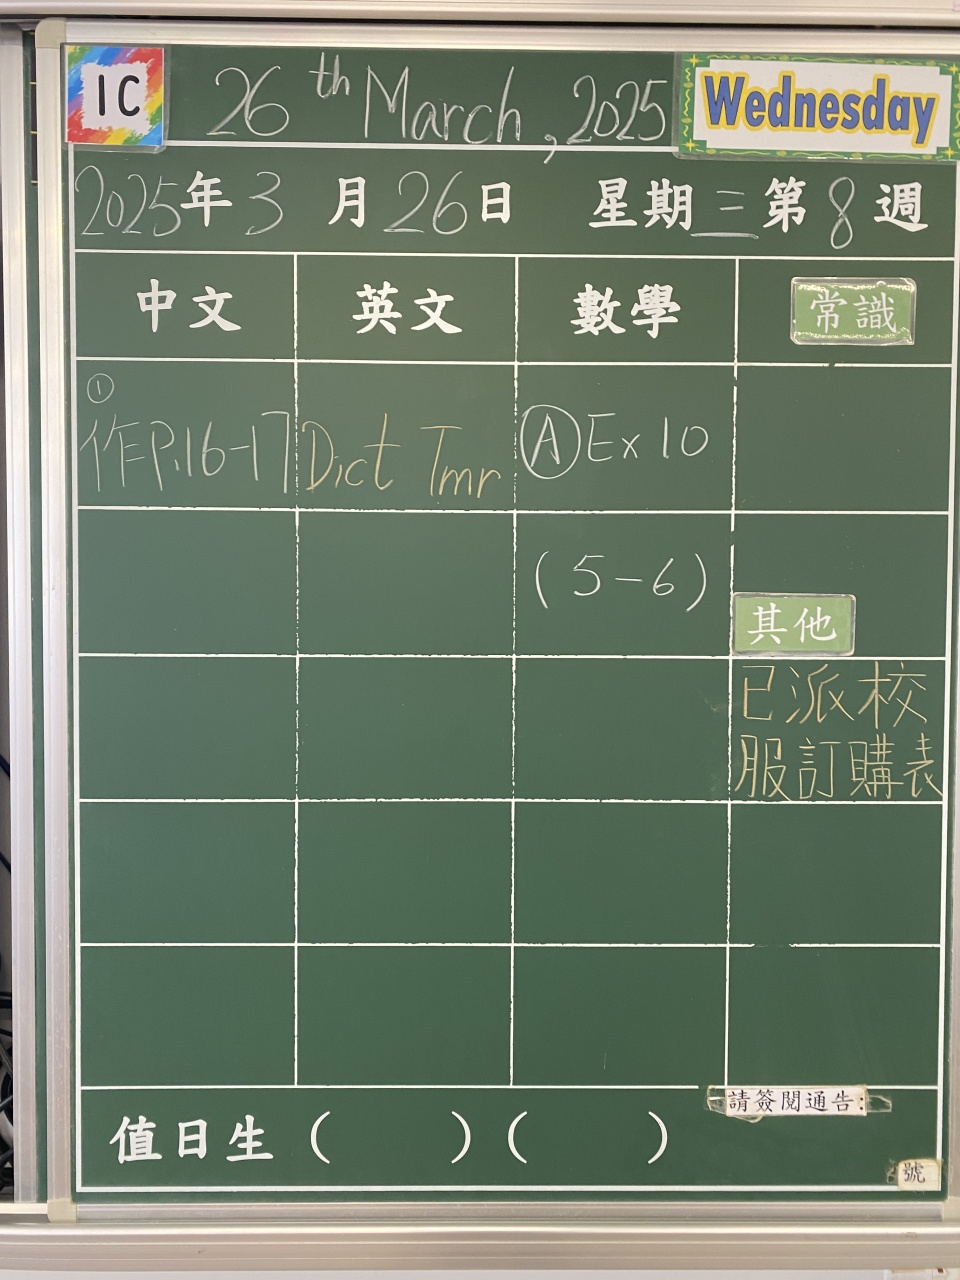 1C 26th March, 2025 Wednesday
2025年3月26日 星期三第8週
中文 英文 數學 常識
①
作P.16-17 Dict Tmr Ⓐ Ex 10
(5-6)
其他
已派校
服訂購表
請簽閱通告:
值日生( )( )
號